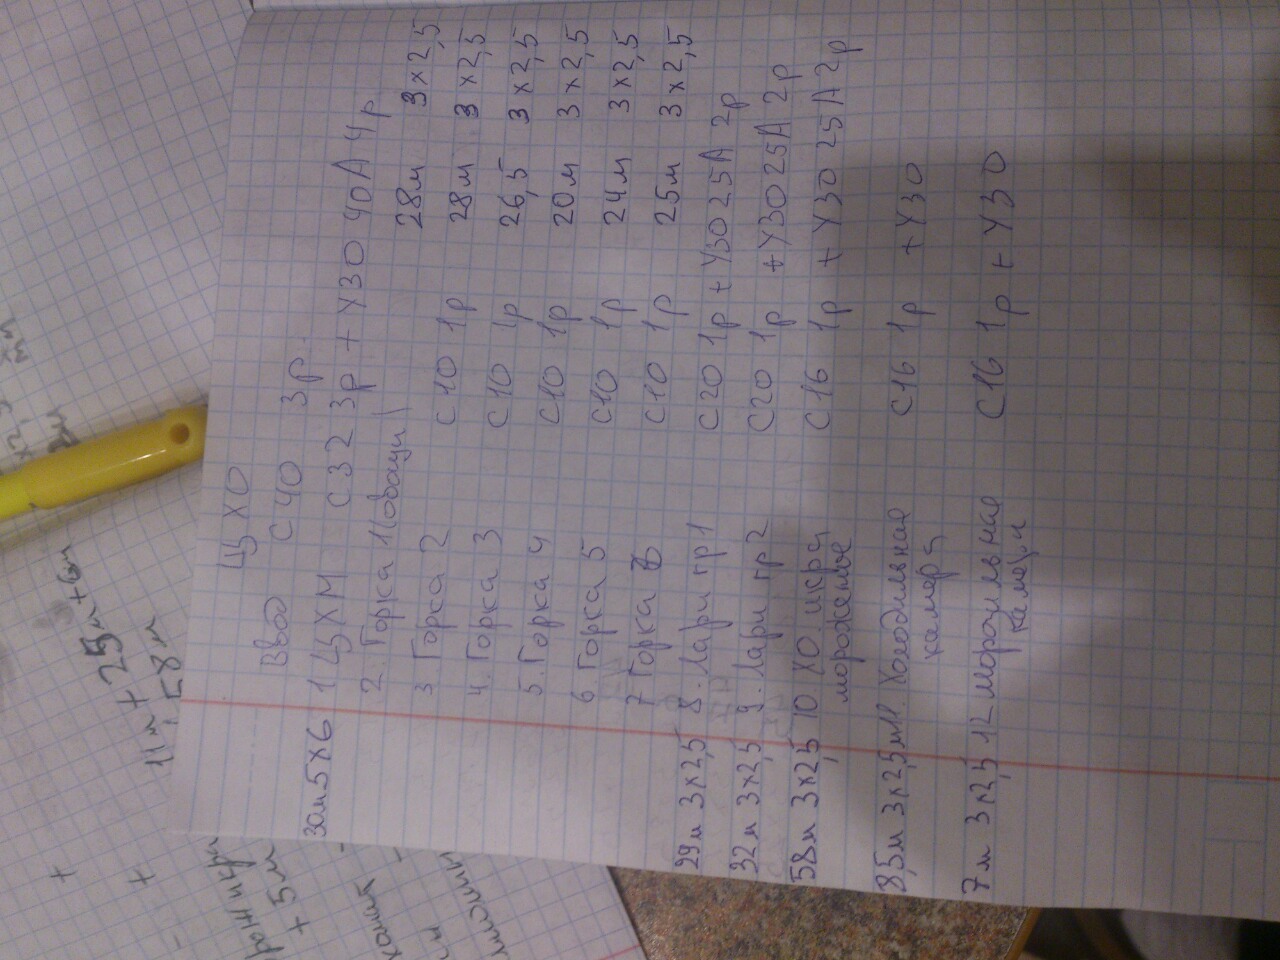 ЩХО
Ввод С40 3р.
30м 5х6 1 ЩХМ С32 3р + УЗО 40А 4р
2. Горка 1 (овощи) 28м 3х2,5
3 Горка 2 С10 1р 28м 3х2,5
4. Горка 3 С10 1р 26,5 3х2,5
5. Горка 4 С10 1р 20м 3х2,5
6 Горка 5 С10 1р 24м 3х2,5
7 Горка 6 С10 1р 25м 3х2,5
29м 3х2,5 8. Лари гр1 С20 1р + УЗО 25А 2р
32м 3х2,5 9. Лари гр2 С20 1р + УЗО 25А 2р
58м 3х2,5 10 ХО икра С16 1р + УЗО 25А 2р
мороженое
8,5м 3х2,5 11. Холодильная С16 1р + УЗО
камера
7м 3х2,5 12 морозильная С16 1р + УЗО
камера
+ 11м + 25м + 6м
+ 58м
+ 5м